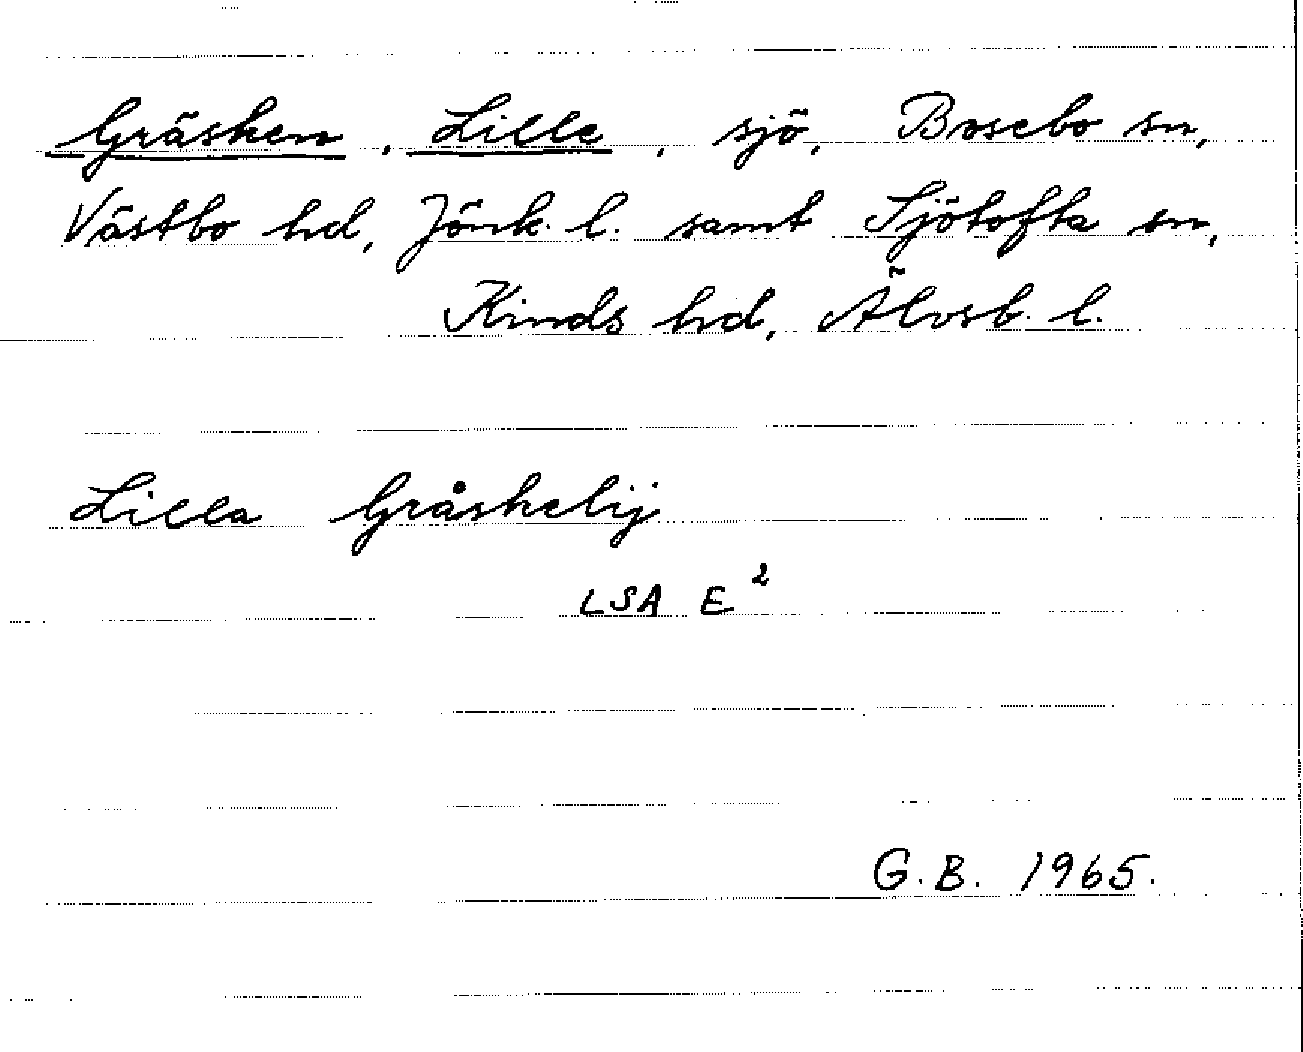 Gräsken, Lille, sjö, Bosebo sn,
Västbo hd, Jönk. l. samt Sjötofta sn,
Kinds hd, Älvsb. l.
Lilla Gråskelij
LSA E²
G.B. 1965.